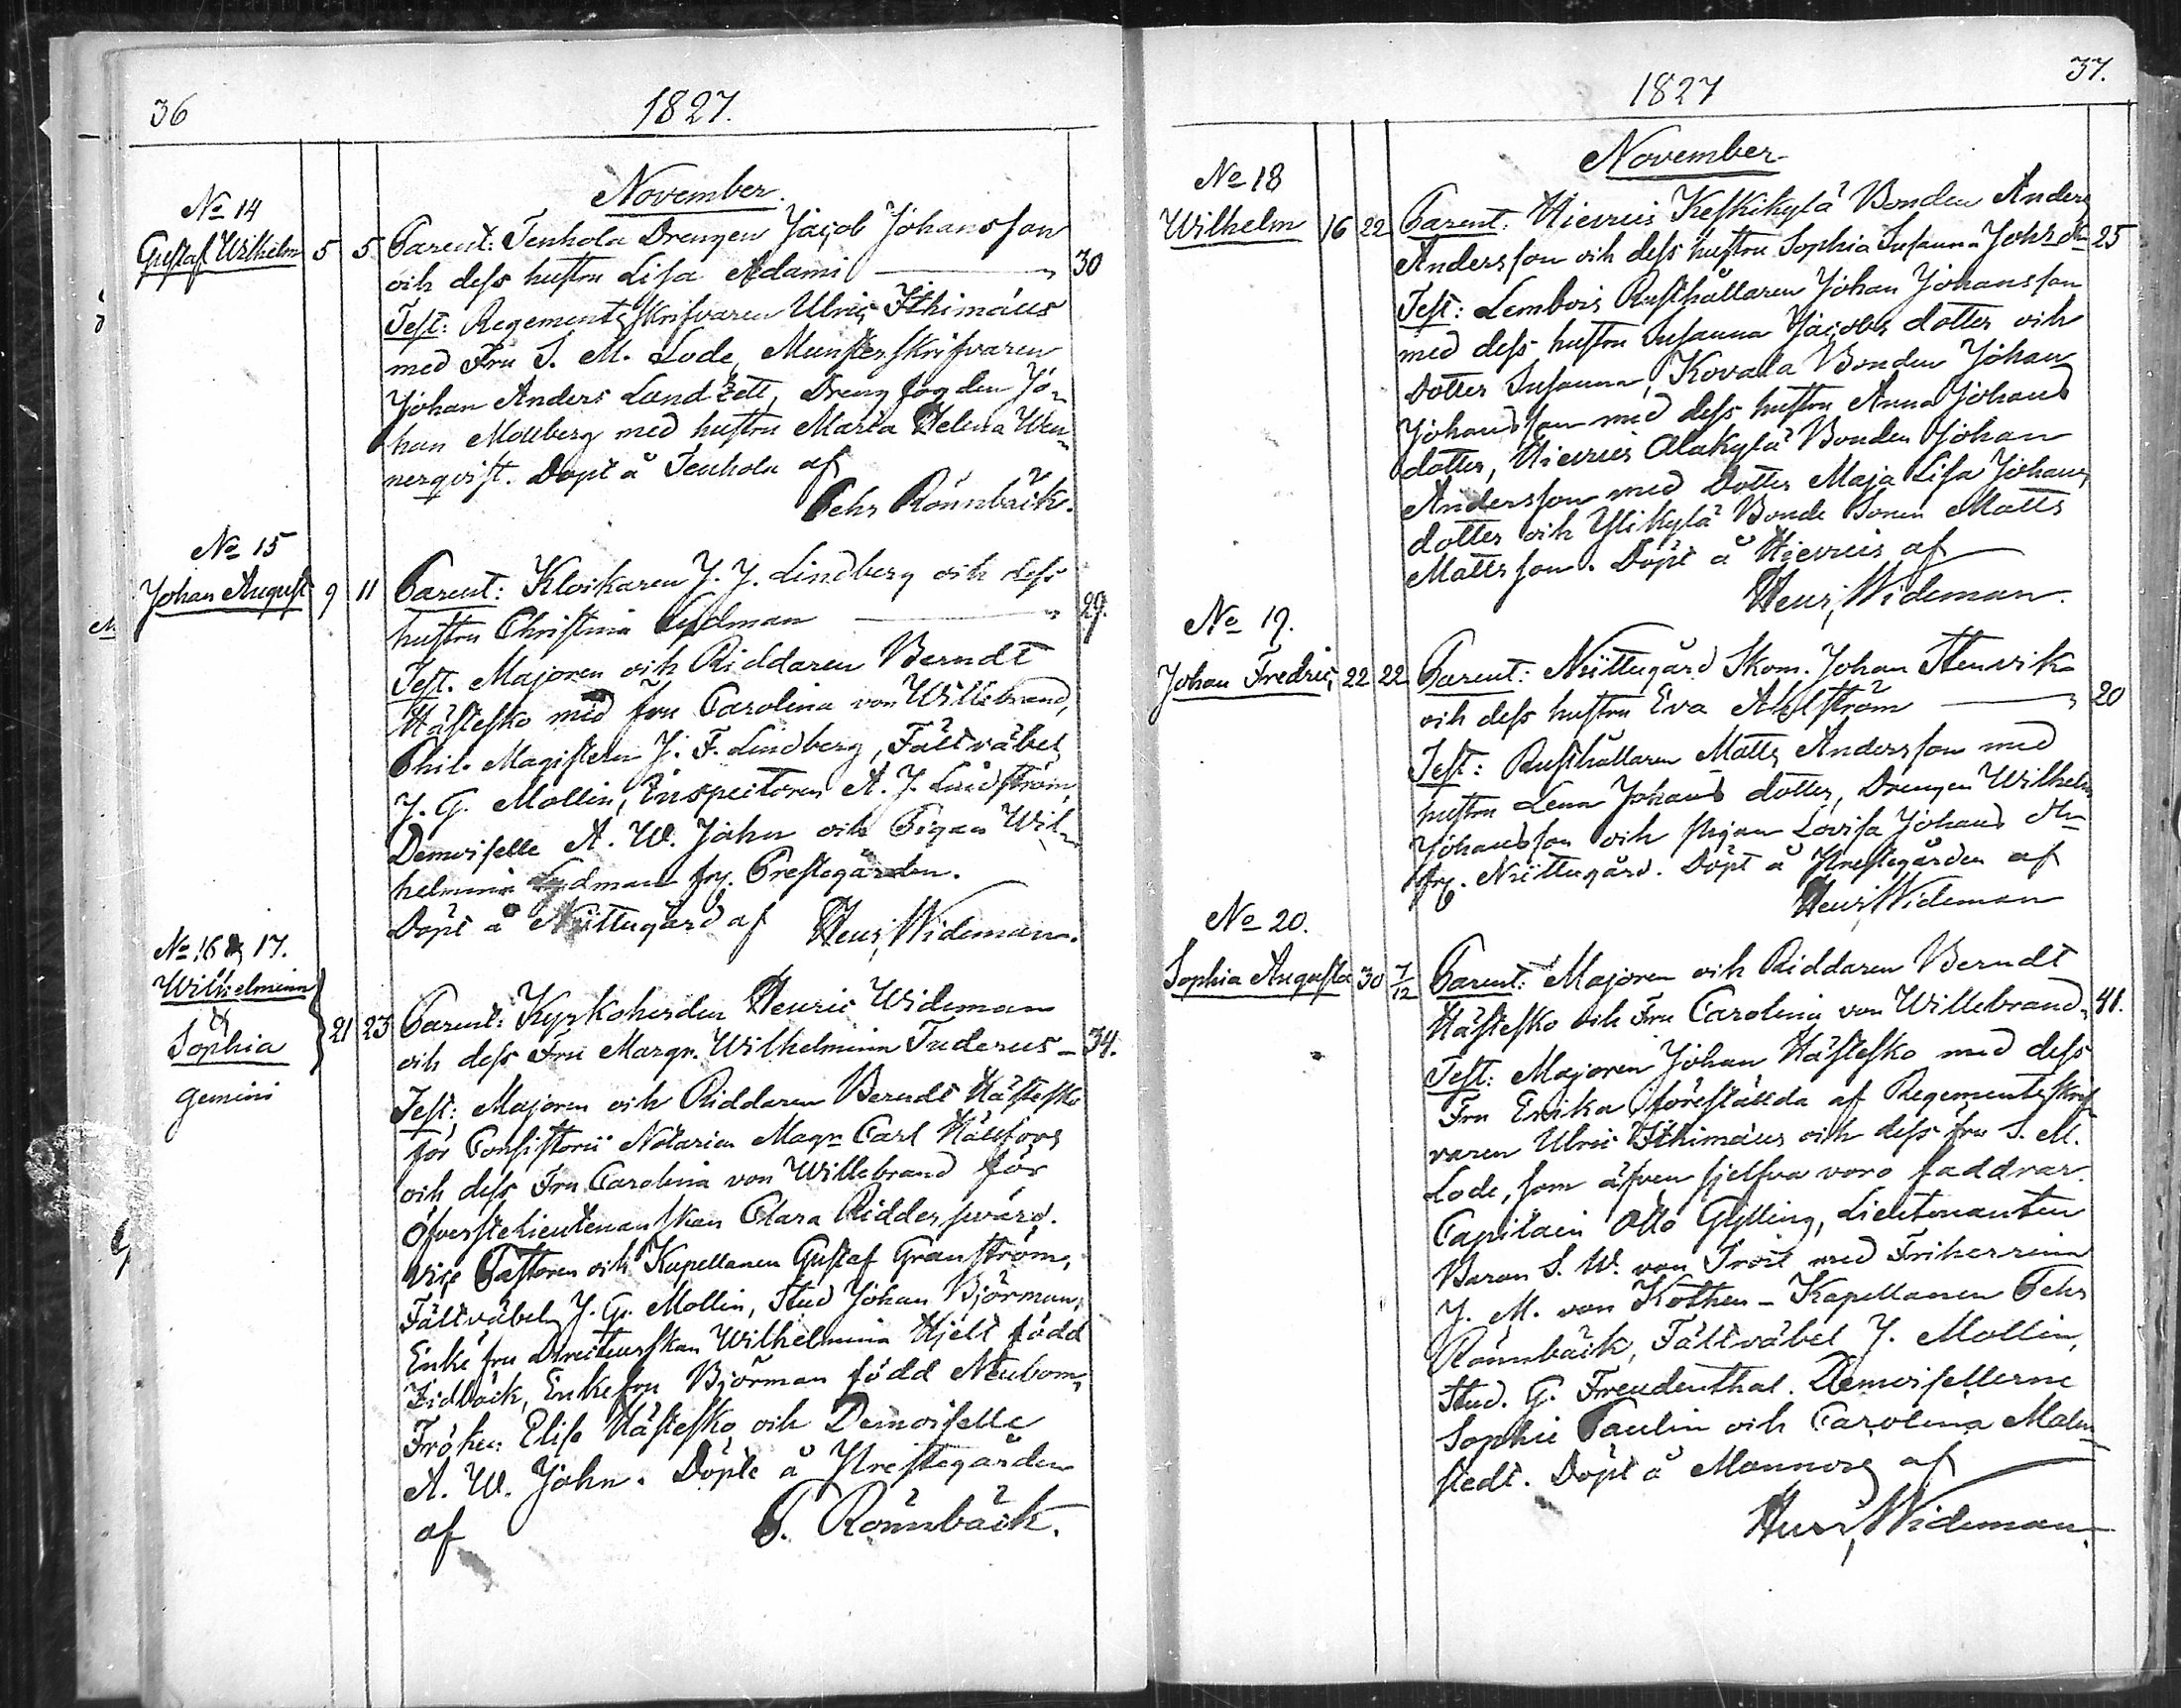 36
1827.
November.
No 14
Gustaf Wilhelm 5 5 Parent: Tenhola Drengen Jacob Johansson
och dess hustru Lisa Adami 30
Test: Regements skrifvaren Ulric Ithimæus
med Fru S. M. Lode, Munsterskrifvaren
Johan Anders Landzett, Dreng fogden Jo-
han Mollberg med hustru Maria Helena Wen-
nerqvist. Döpt å Tenhola af
Pehr Rönnbäck.
No 15
Johan August 9 11 Parent: Klockaren J. J. Lindberg och dess
hustru Christina Lydman 29.
Test. Majoren och Riddaren Berndt
Hästesko med fru Carolina von Willebrand,
Phil. Magistern J. F. Lindberg, Fältväbel
J. G. Mollin, Inspectoren A. J. Lindström,
Demoiselle A. W. John och Pigan Wil-
helmina Lydman frn. Prestegården.
Döpt å Niittugård af Henr. Wideman.
No 16 & 17.
Wilhelmina
&
Sophia
gemini
21 23 Parent: Kyrkoherden Henric Wideman
och dess Fru Margr. Wilhelmina Tuderus 34.
Test: Majoren och Riddaren Berndt Hästesko
för Consistorii Notarien Magr Carl Hällfors
och dess Fru Carolina von Willebrand för
öfverstelieutenantskan Clara Riddersvärd.
Vice Pastoren och Kapellanen Gustaf Granström,
Fältväbeln J. G. Mollin, Stud Johan Björman,
Enke fru Directeurskan Wilhelmina Hjelt född
Zidbäck, Enkefru Björman född Neubom,
Fröken Elise Hästesko och Demoiselle
A. W. John. Döpte å Prestegården
af P. Rönnbäck.
37.
1827
November
No 18
Wilhelm 16 22 Parent: Hievuis Keskikylä Bonden Anders
Andersson och dess hustru Sophia Susanna Johs dr 25
Test: Lembois Rusthållaren Johan Johansson
med dess hustru Susanna Jacobs dotter och
dotter Susanna, Kovala Bonden Johan
Johansson med dess hustru Anna Johans
dotter, Hievuis Alakylä Bonden Johan
Andersson med dotter Maja Lisa Johans
dotter och Ylikylä Bonde Sonen Matts
Mattsson. Döpt å Hievuis af
Henr. Wideman.
No 19.
Johan Fredric, 22 22 Parent: Niittugård Skom. Johan Stenvik
och dess hustru Eva Ahlström 20
Test: Rusthållaren Matts Andersson med
hustru Lena Johans dotter, Drengen Wilhelm
Johansson och pigan Lovisa Johans dr
frn. Niittugård. Döpt å Prestegården af
Henr. Wideman
No 20.
Sophia Augusta 30 7/12 Parent: Majoren och Riddaren Berndt
Hästesko och Fru Carolina von Willebrand 41.
Test: Majoren Johan Hästesko med dess
Fru Erika föreställda af Regementsskrif-
varen Ulric Ithimæus och dess fru S. M.
Lode, som äfven sjelfva voro faddrar.
Capitain Otto Gylling, Lieutenanten
Baron S. W. von Troil med Friherrinn
J. M. von Kothen - Kapellanen Pehr
Rönnbäck, Fältväbel J. Mollin,
Stud. G. Freudenthal. Demoisellerne
Sophie Paulin och Carolina Malm-
stedt. Döpt å Mannors af
Henr. Wideman.